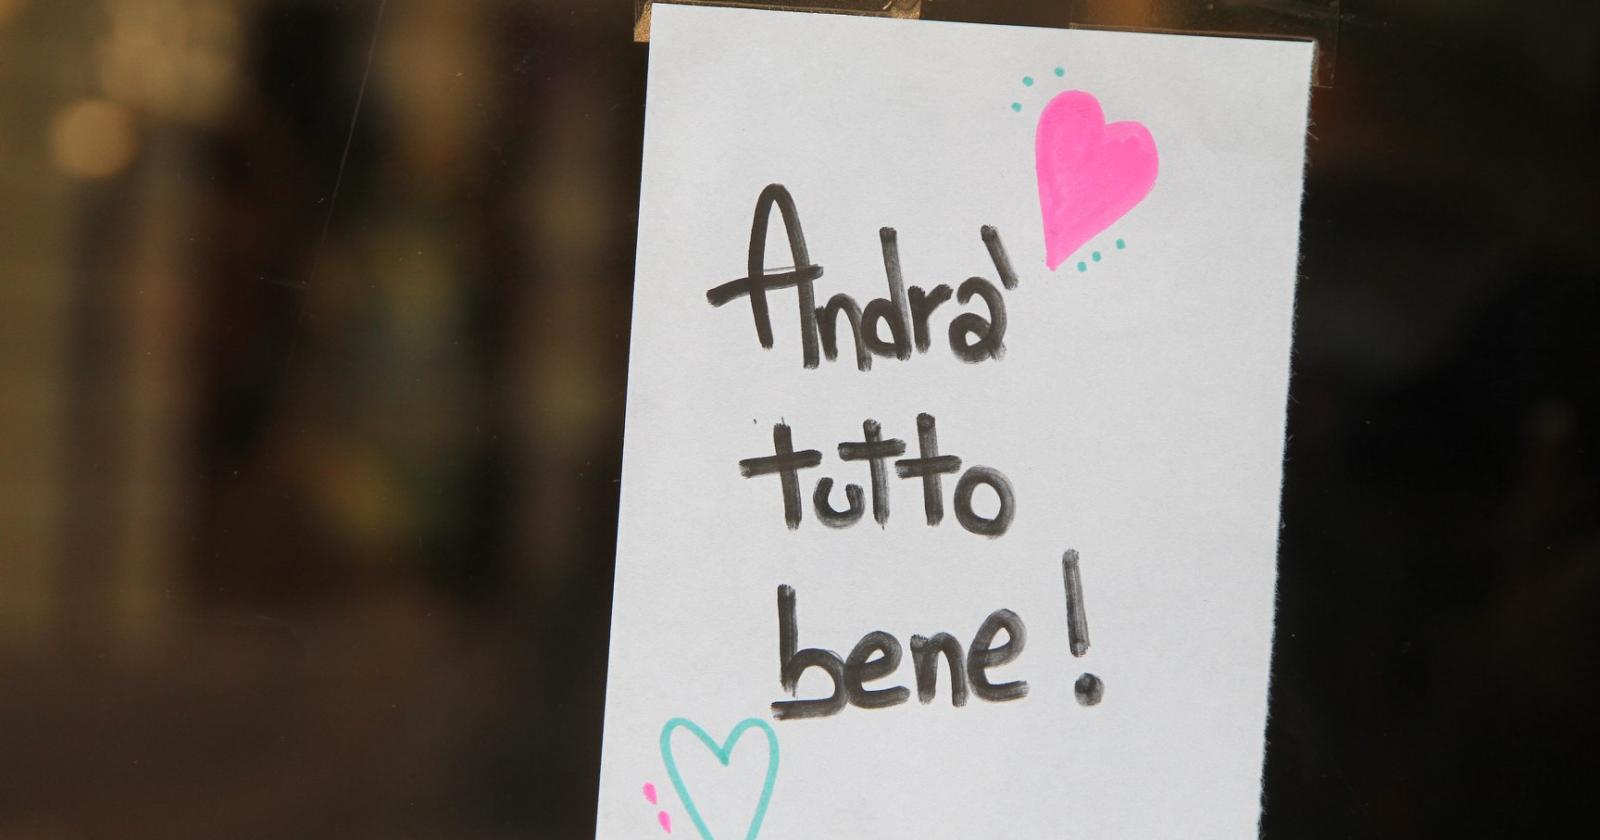 Andra'
tutto
bene!